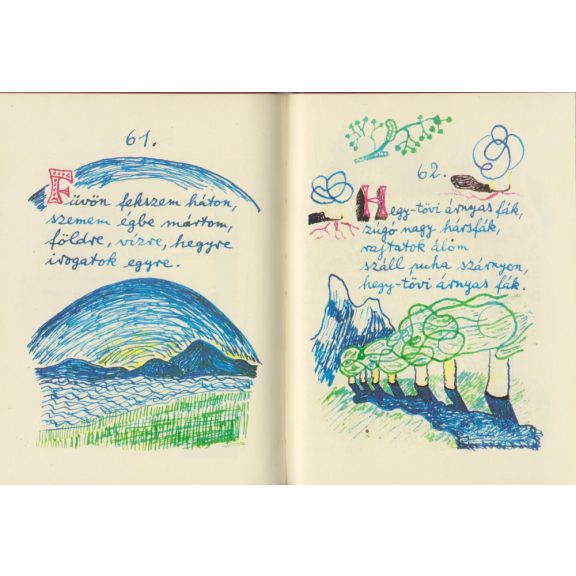 61.
Füvön fekszem háton,
szemem égbe mártom,
földre, vizre, hegyre
irogatok egyre.
62.
Hegy-tövi árnyas fák,
zúgó nagy hársfák,
rajtatok álom
száll puha szárnyon,
hegy-tövi árnyas fák.